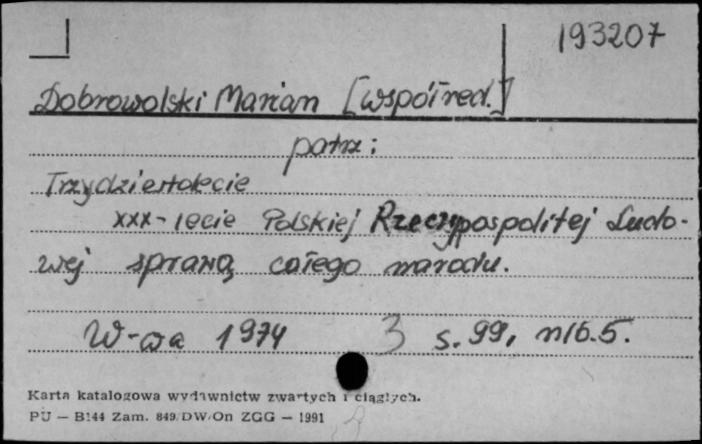 193207
Dobrowolski Marian [współred.]
patrz:
Trzydziestolecie
XXX-lecie Polskiej Rzeczypospolitej Ludo-
wej sprawą całego narodu.
W-wa 1974 3 s. 99, nlb. 5.
Karta katalogowa wydawnictw zwartych i ciągłych.
PU — B144 Zam. 849/DW/On ZGG — 1991